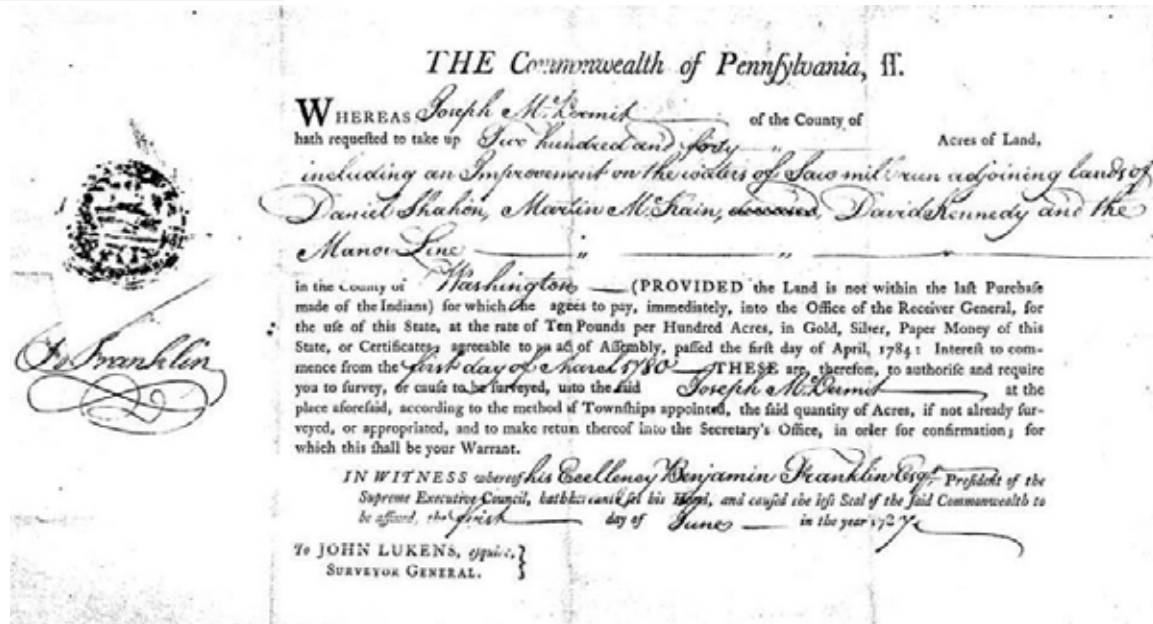 THE Commonwealth of Pennſylvania, ſſ.
WHEREAS Joseph McDermit of the County of
hath requeſted to take up Two hundred and forty Acres of Land,
including an Improvement on the waters of Saw mill run adjoining lands of
Daniel Shahon, Martin McKain, David Kennedy and the
Manor Line
in the County of Washington (PROVIDED the Land is not within the laſt Purchaſe
made of the Indians) for which he agrees to pay, immediately, into the Office of the Receiver General, for
the uſe of this State, at the rate of Ten Pounds per Hundred Acres, in Gold, Silver, Paper Money of this
State, or Certificates, agreeable to an act of Aſſembly, paſſed the firſt day of April, 1784: Intereſt to com-
mence from the first day of March 1780 THESE are, therefore, to authoriſe and require
you to ſurvey, or cauſe to be ſurveyed, unto the ſaid Joseph McDermit at the
place aforeſaid, according to the method of Townſhips appointed, the ſaid quantity of Acres, if not already ſur-
veyed, or appropriated, and to make return thereof into the Secretary's Office, in order for confirmation; for
which this ſhall be your Warrant.
IN WITNESS whereof his Excellency Benjamin Franklin Esqr. President of the
Supreme Executive Council, hath ſet his Hand, and cauſed the leſs Seal of the ſaid Commonwealth to
be affixed, the first day of June in the year 1787
To JOHN LUKENS, eſquire,
SURVEYOR GENERAL.
Franklin